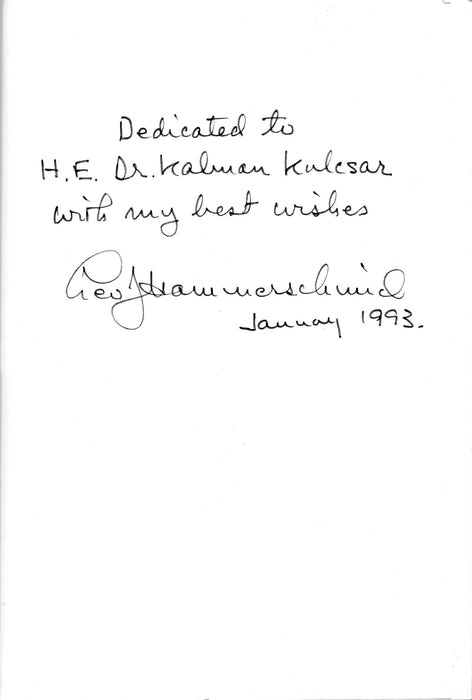 Dedicated to
H.E. Dr. Kalman Kulcsar
with my best wishes
Geo J Hammerschmid
January 1993.